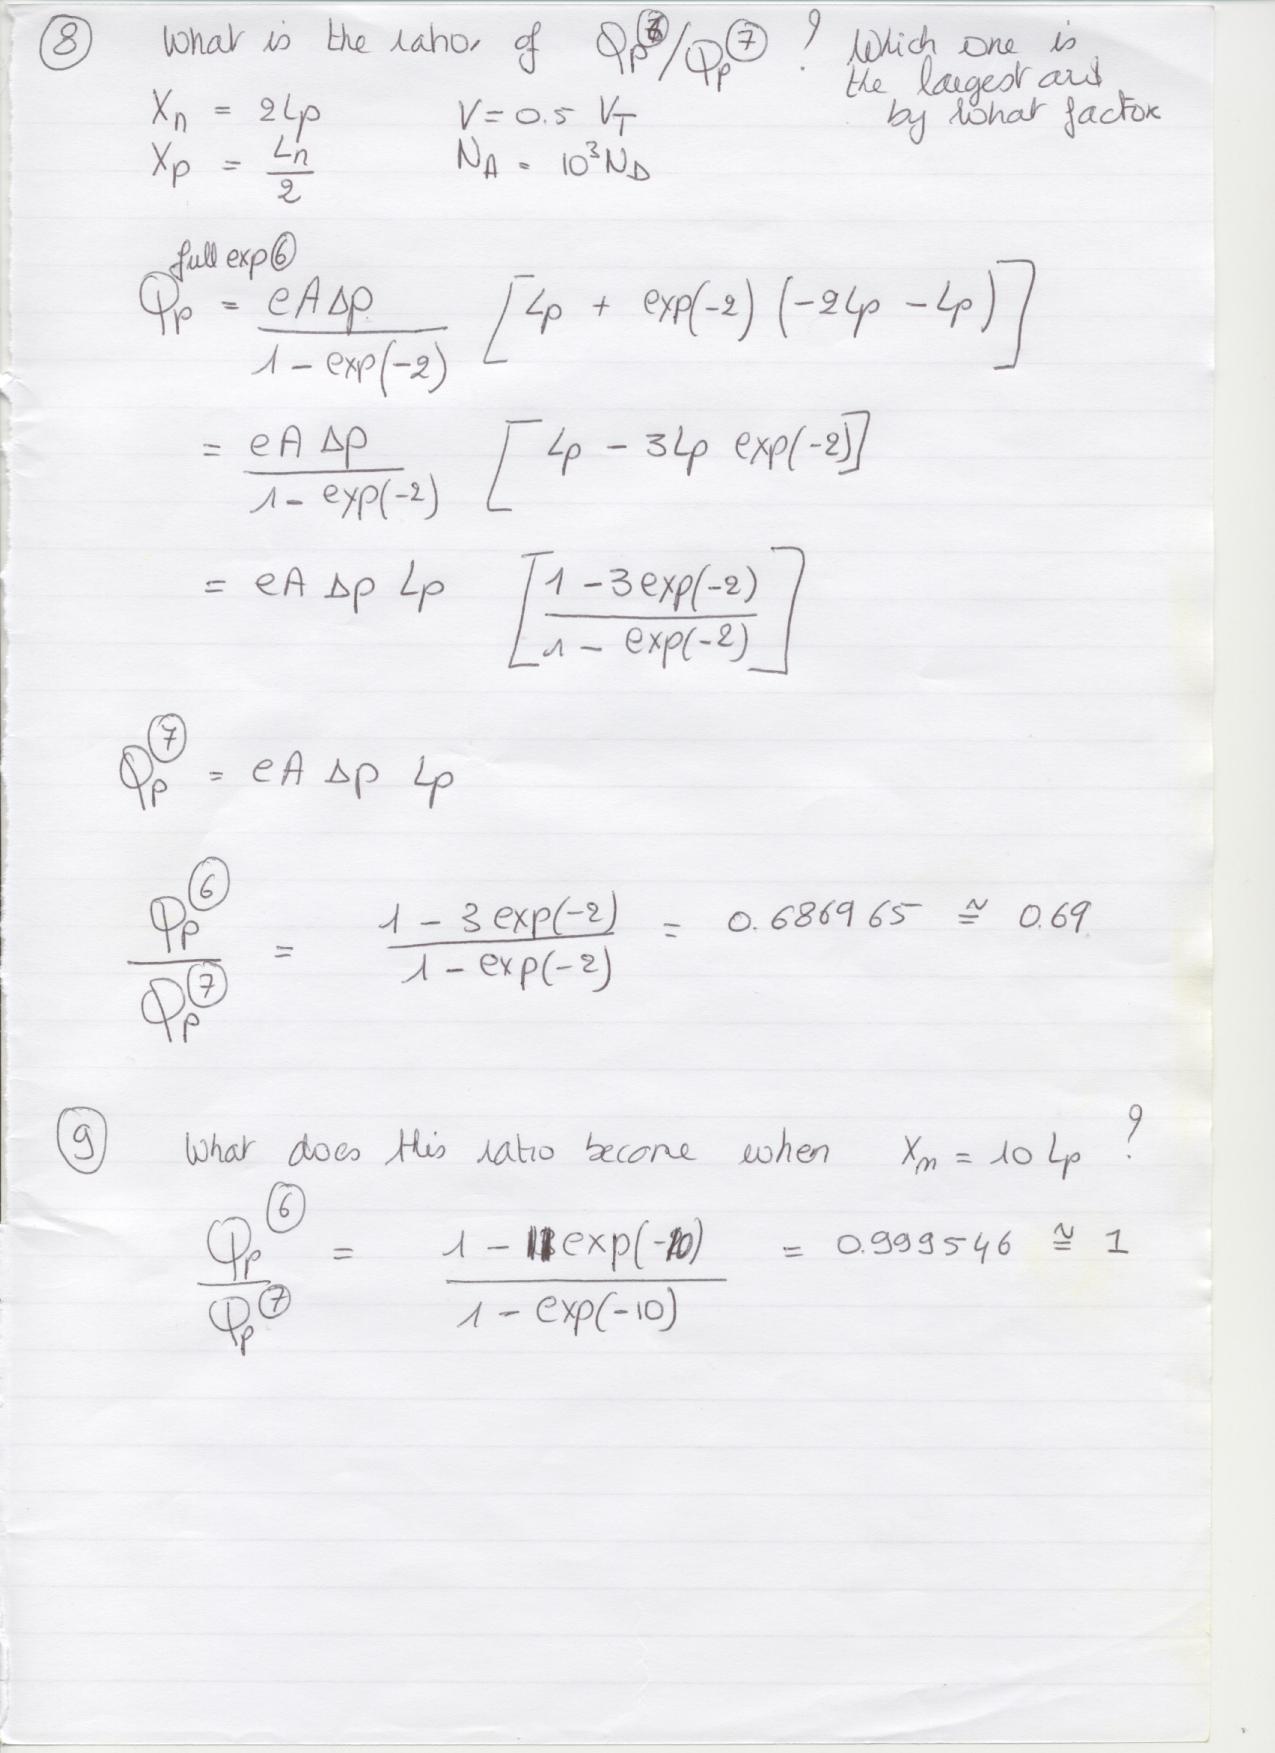 ⑧ What is the ratio of Qp⑥/Qp⑦ ? Which one is
the largest and
by what factor
Xn = 2Lp V = 0.5 VT
Xp = Ln/2 NA = 10³ND
full exp⑥
Qp = eAΔp/(1 - exp(-2)) [Lp + exp(-2) (-2Lp - Lp)]
= eAΔp/(1 - exp(-2)) [Lp - 3Lp exp(-2)]
= eA Δp Lp [(1 - 3exp(-2))/(1 - exp(-2))]
Qp⑦ = eA Δp Lp
Qp⑥/Qp⑦ = (1 - 3exp(-2))/(1 - exp(-2)) = 0.686965 ≅ 0.69
⑨ What does this ratio become when Xn = 10 Lp ?
Qp⑥/Qp⑦ = (1 - 11exp(-10))/(1 - exp(-10)) = 0.999546 ≅ 1